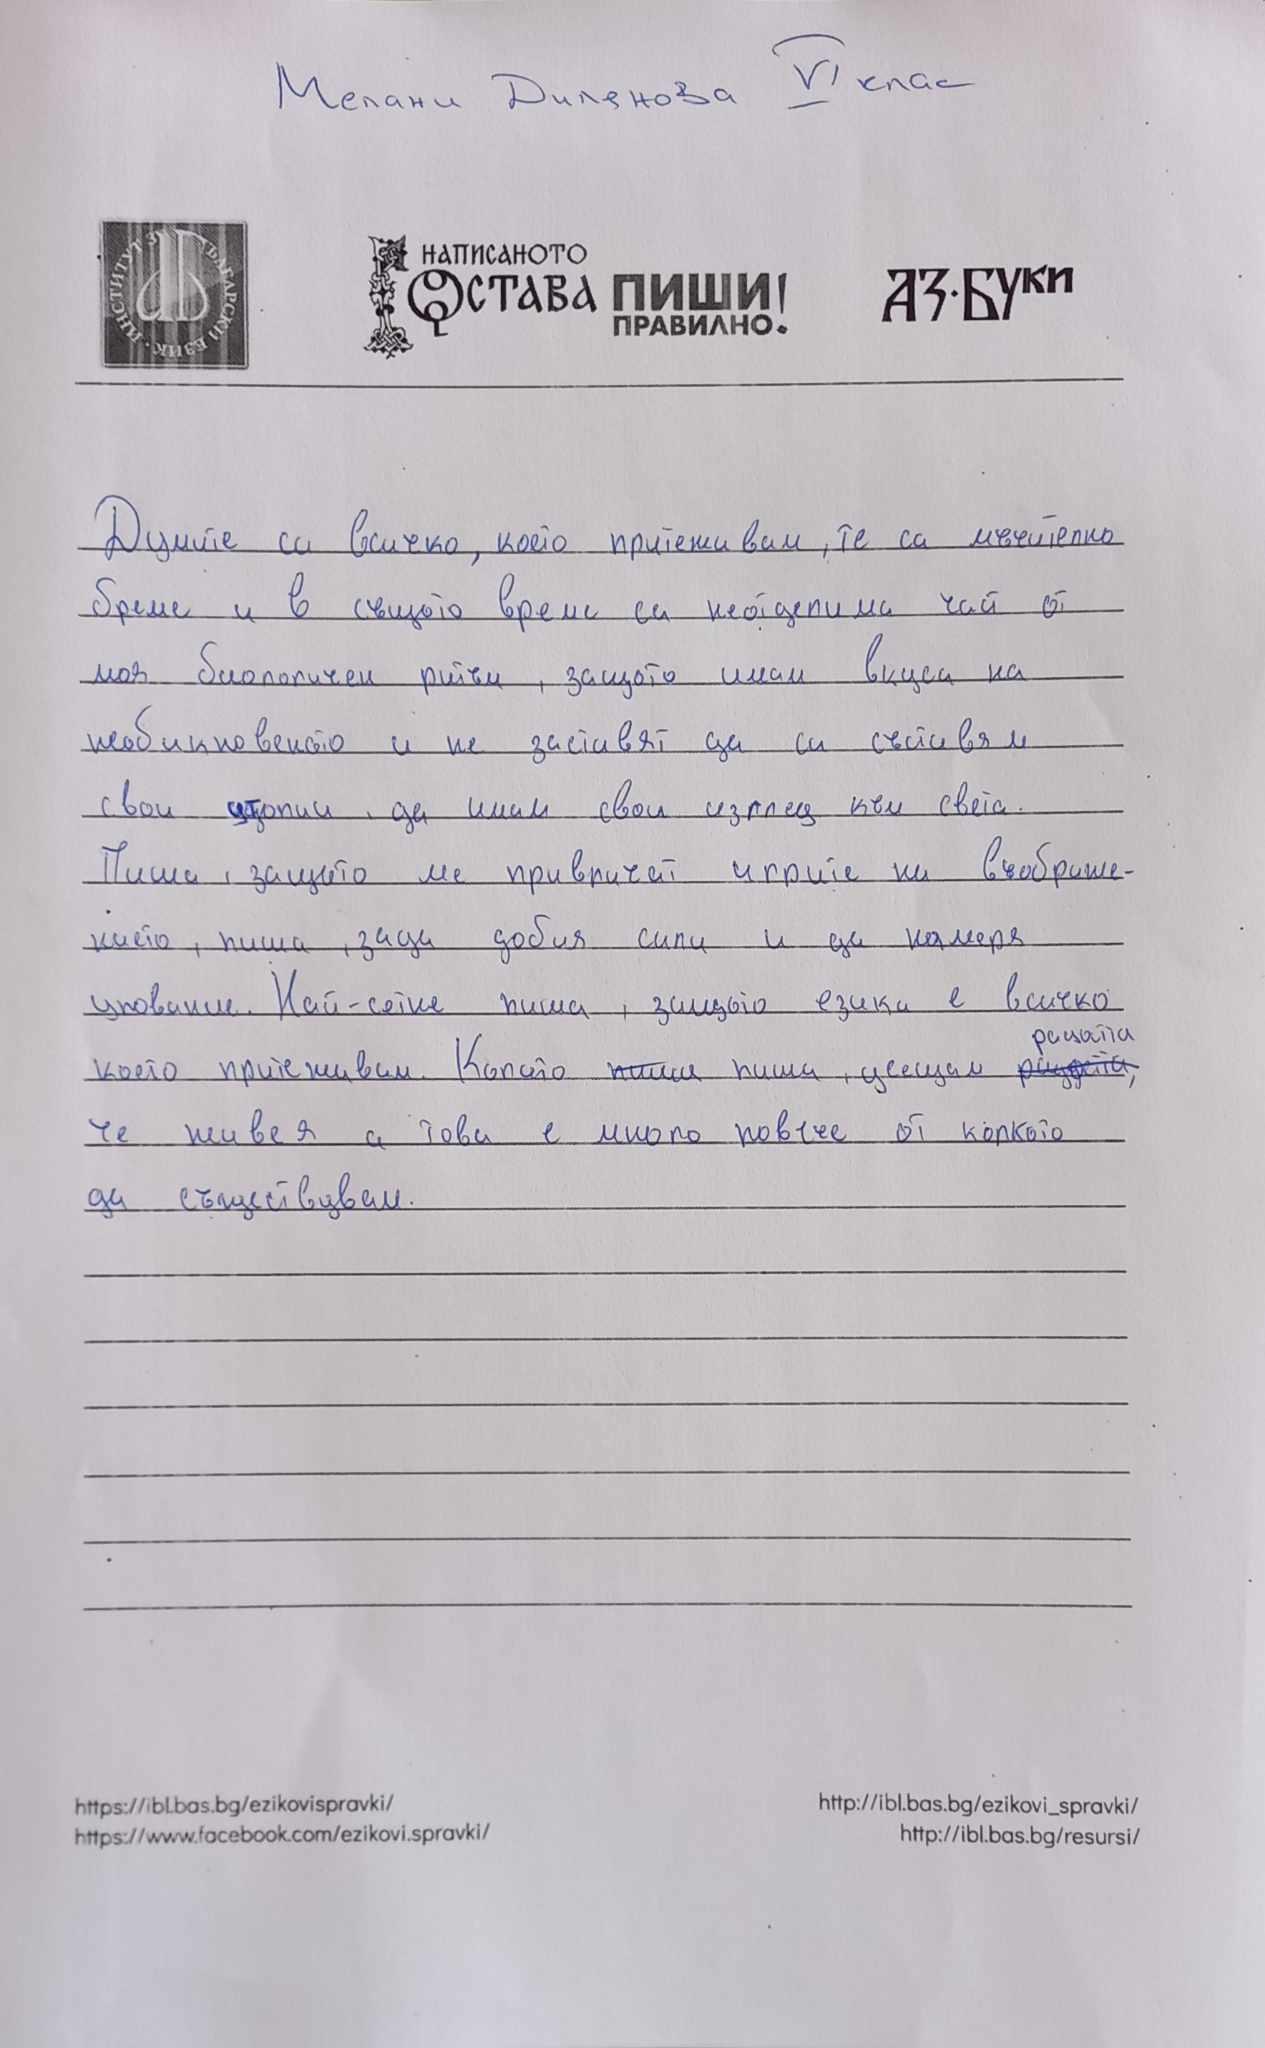 Мелани Дилянова VI клас
ИНСТИТУТ ЗА БЪЛГАРСКИ ЕЗИК
НАПИСАНОТО
ОСТАВА ПИШИ!
ПРАВИЛНО.
АЗ·БУКИ
Думите са всичко, което притежавам, те са мечтателно
бреме и в същото време са неотделима част от
моя биологичен ритъм, защото имам вкуса на
необикновеното и не заставят да си съставям
свои утопии, да имам свои изглед към света.
Пиша, защото ме привличат игрите на въображе-
нието, пиша, за да добия сили и да намеря
упование. Най-сетне пиша, защото езика е всичко
което притежавам. Когато пиша, усещам радостта
че живея а това е много повече от колкото
да съществувам.
https://ibl.bas.bg/ezikovispravki/
https://www.facebook.com/ezikovi.spravki/
http://ibl.bas.bg/ezikovi_spravki/
http://ibl.bas.bg/resursi/